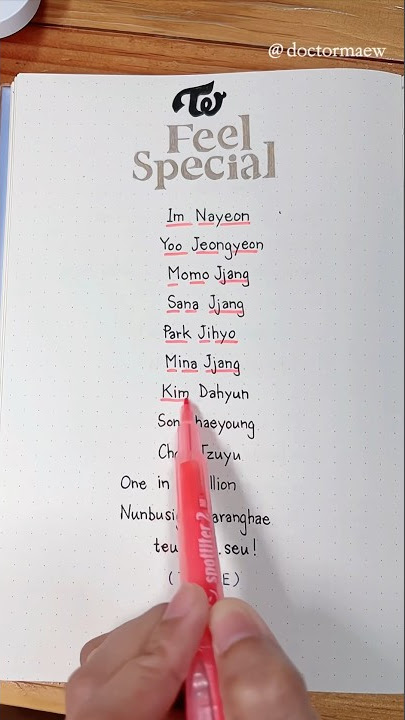 @doctormaew
Feel
Special
Im Nayeon
Yoo Jeongyeon
Momo Jjang
Sana Jjang
Park Jihyo
Mina Jjang
Kim Dahyun
Son haeyoung
Ch Tzuyu
One in llion
Nunbusi aranghae
teu seu!
( T E )
spotliter 2